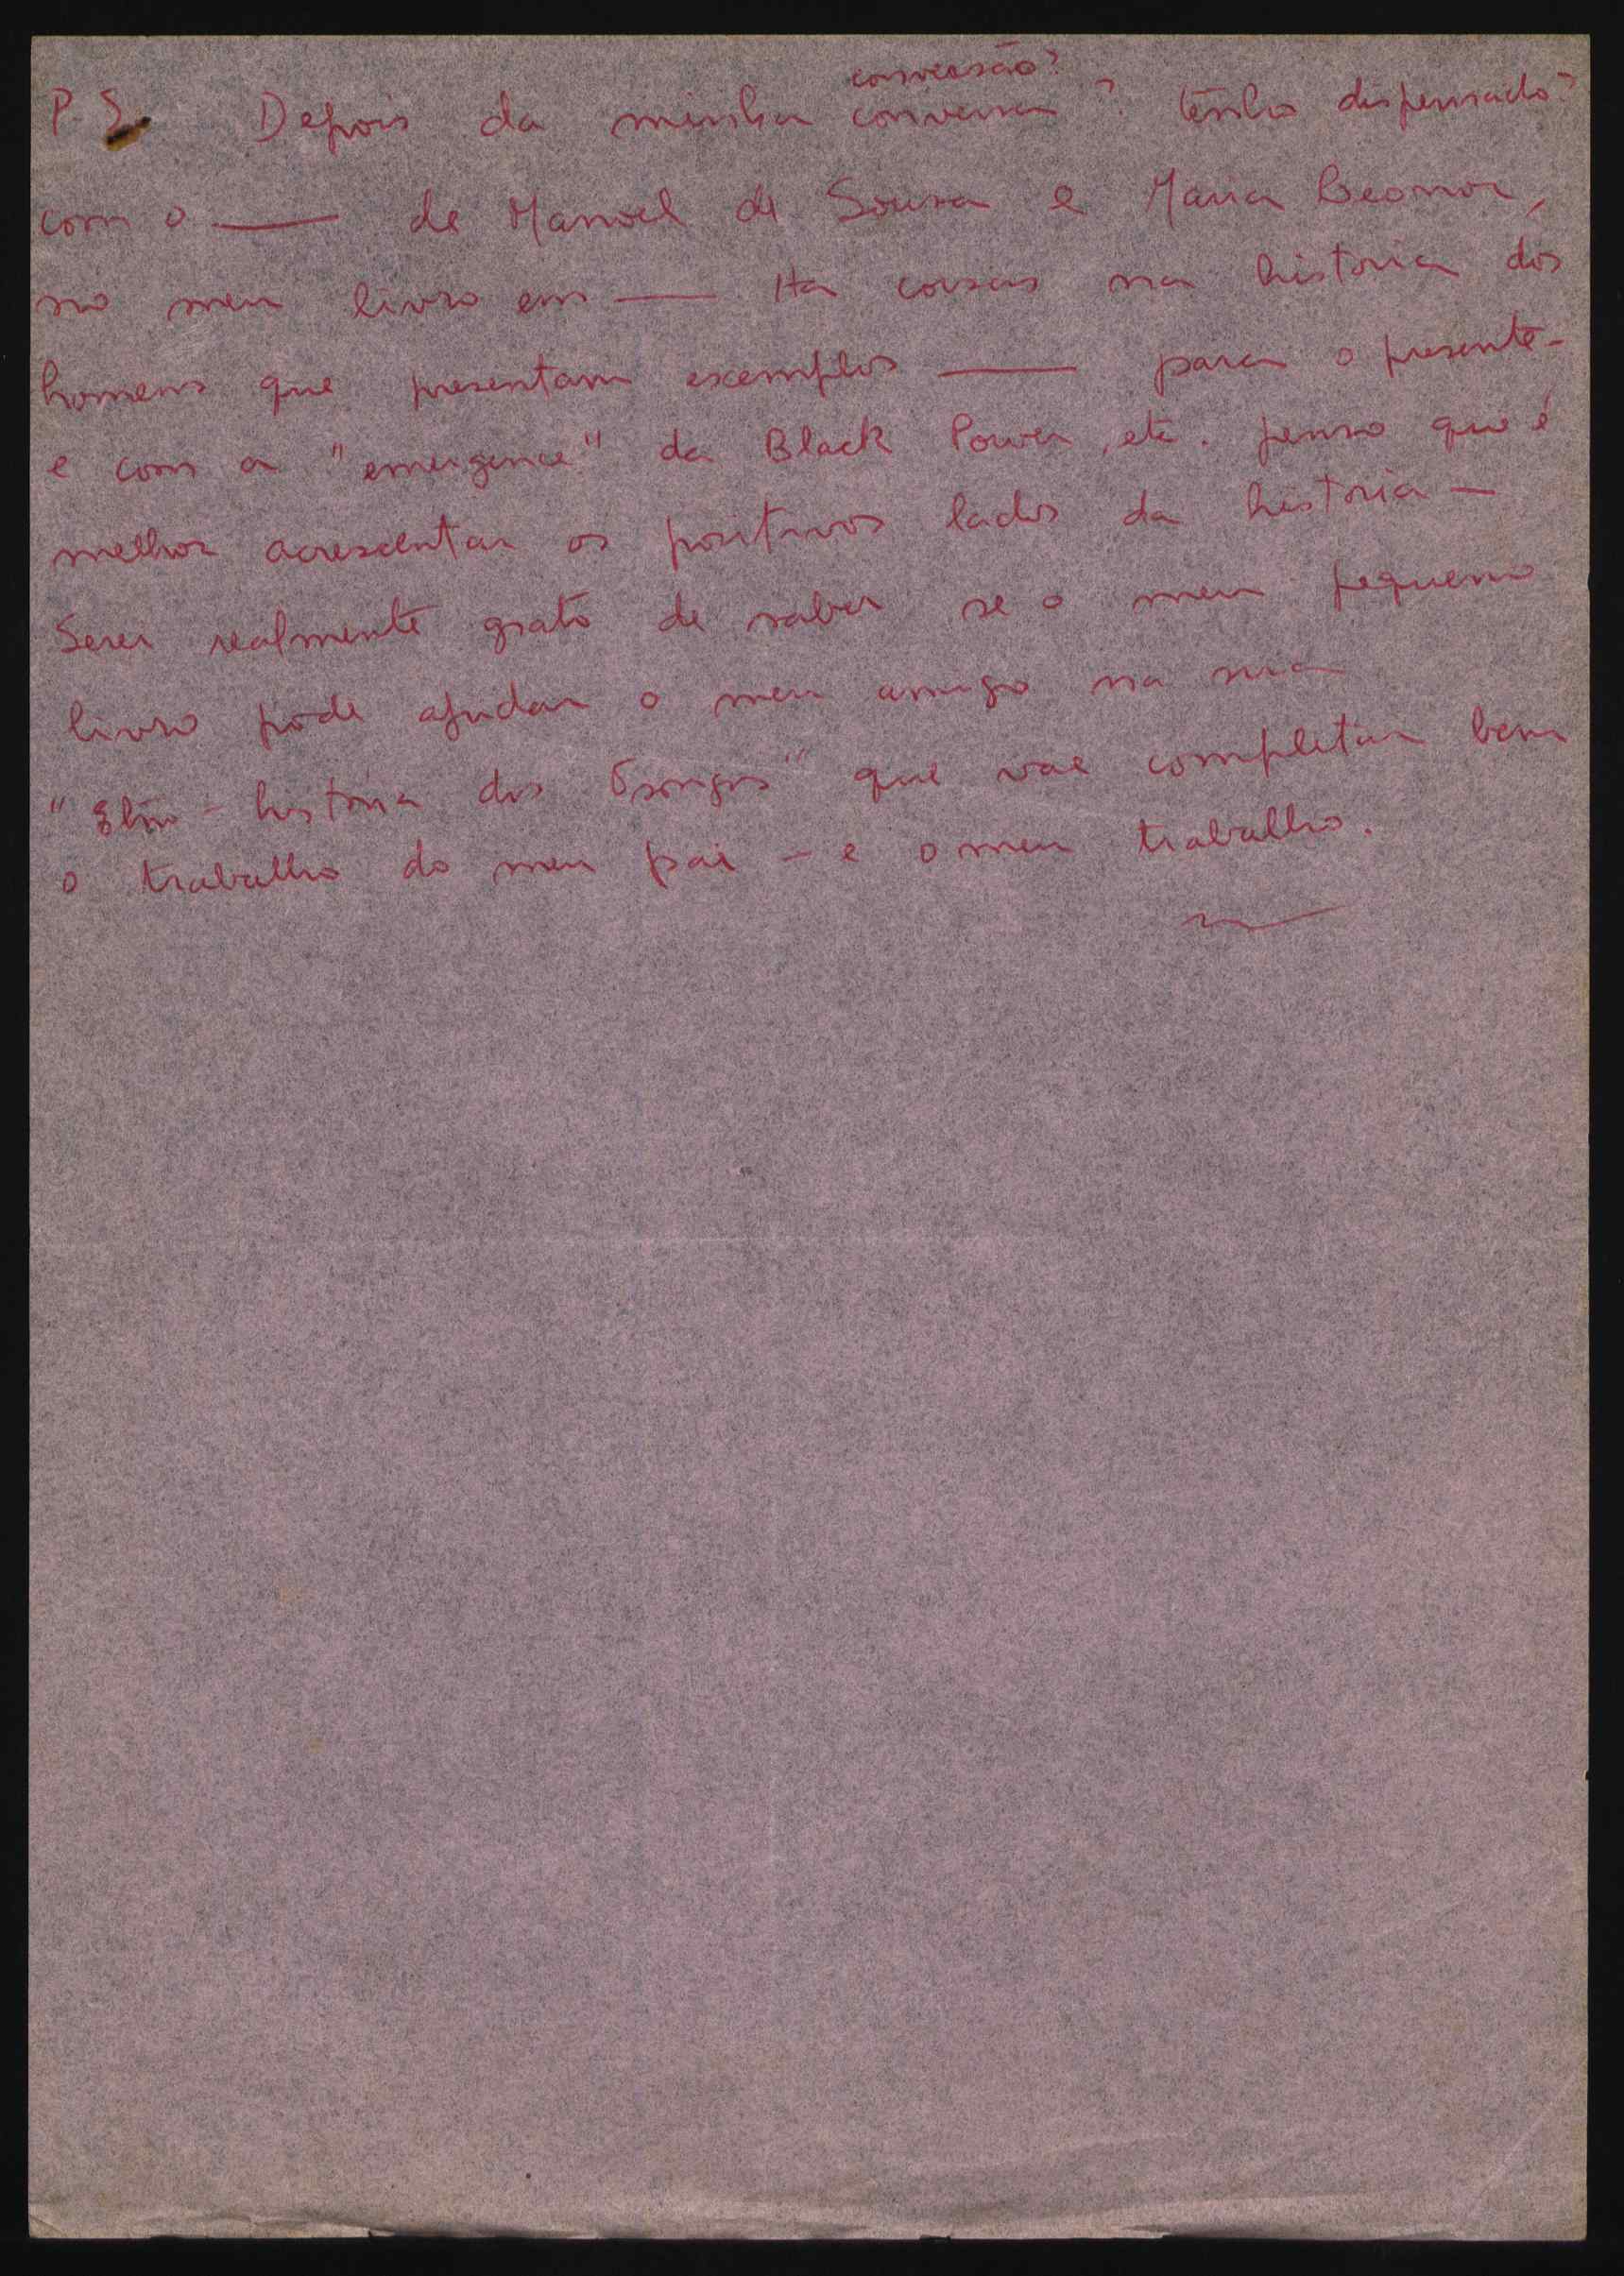 conversão?
P.S. Depois da minha conversa? tenho dispensado?
com o — de Manoel de Sousa e Maria Leonor,
no meu livro em — Ha coisas na historia dos
homens que presentam exemplos — para o presente -
e com a "emergence" da Black Power, etc. penso que é
melhor acrescentar os positivos lados da historia —
Serei realmente grato de saber se o meu pequeno
livro pode ajudar o meu amigo na sua
"Etno - história dos Tsongas" que vae completar bem
o trabalho do meu pai - e o meu trabalho.